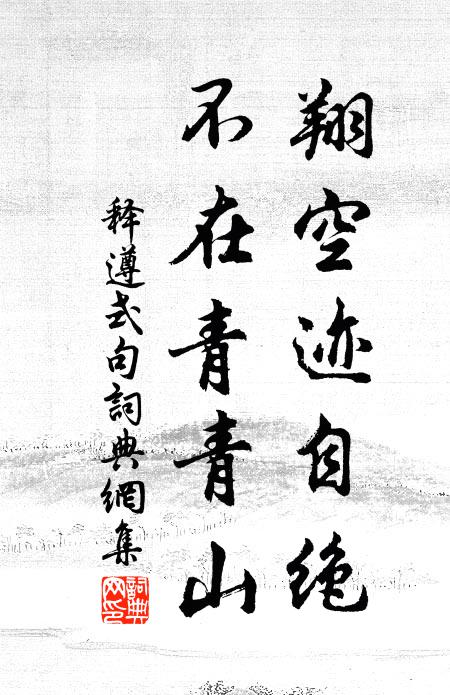 翔空迹自绝
不在青青山
释遵式句詞典網集
詞典网印